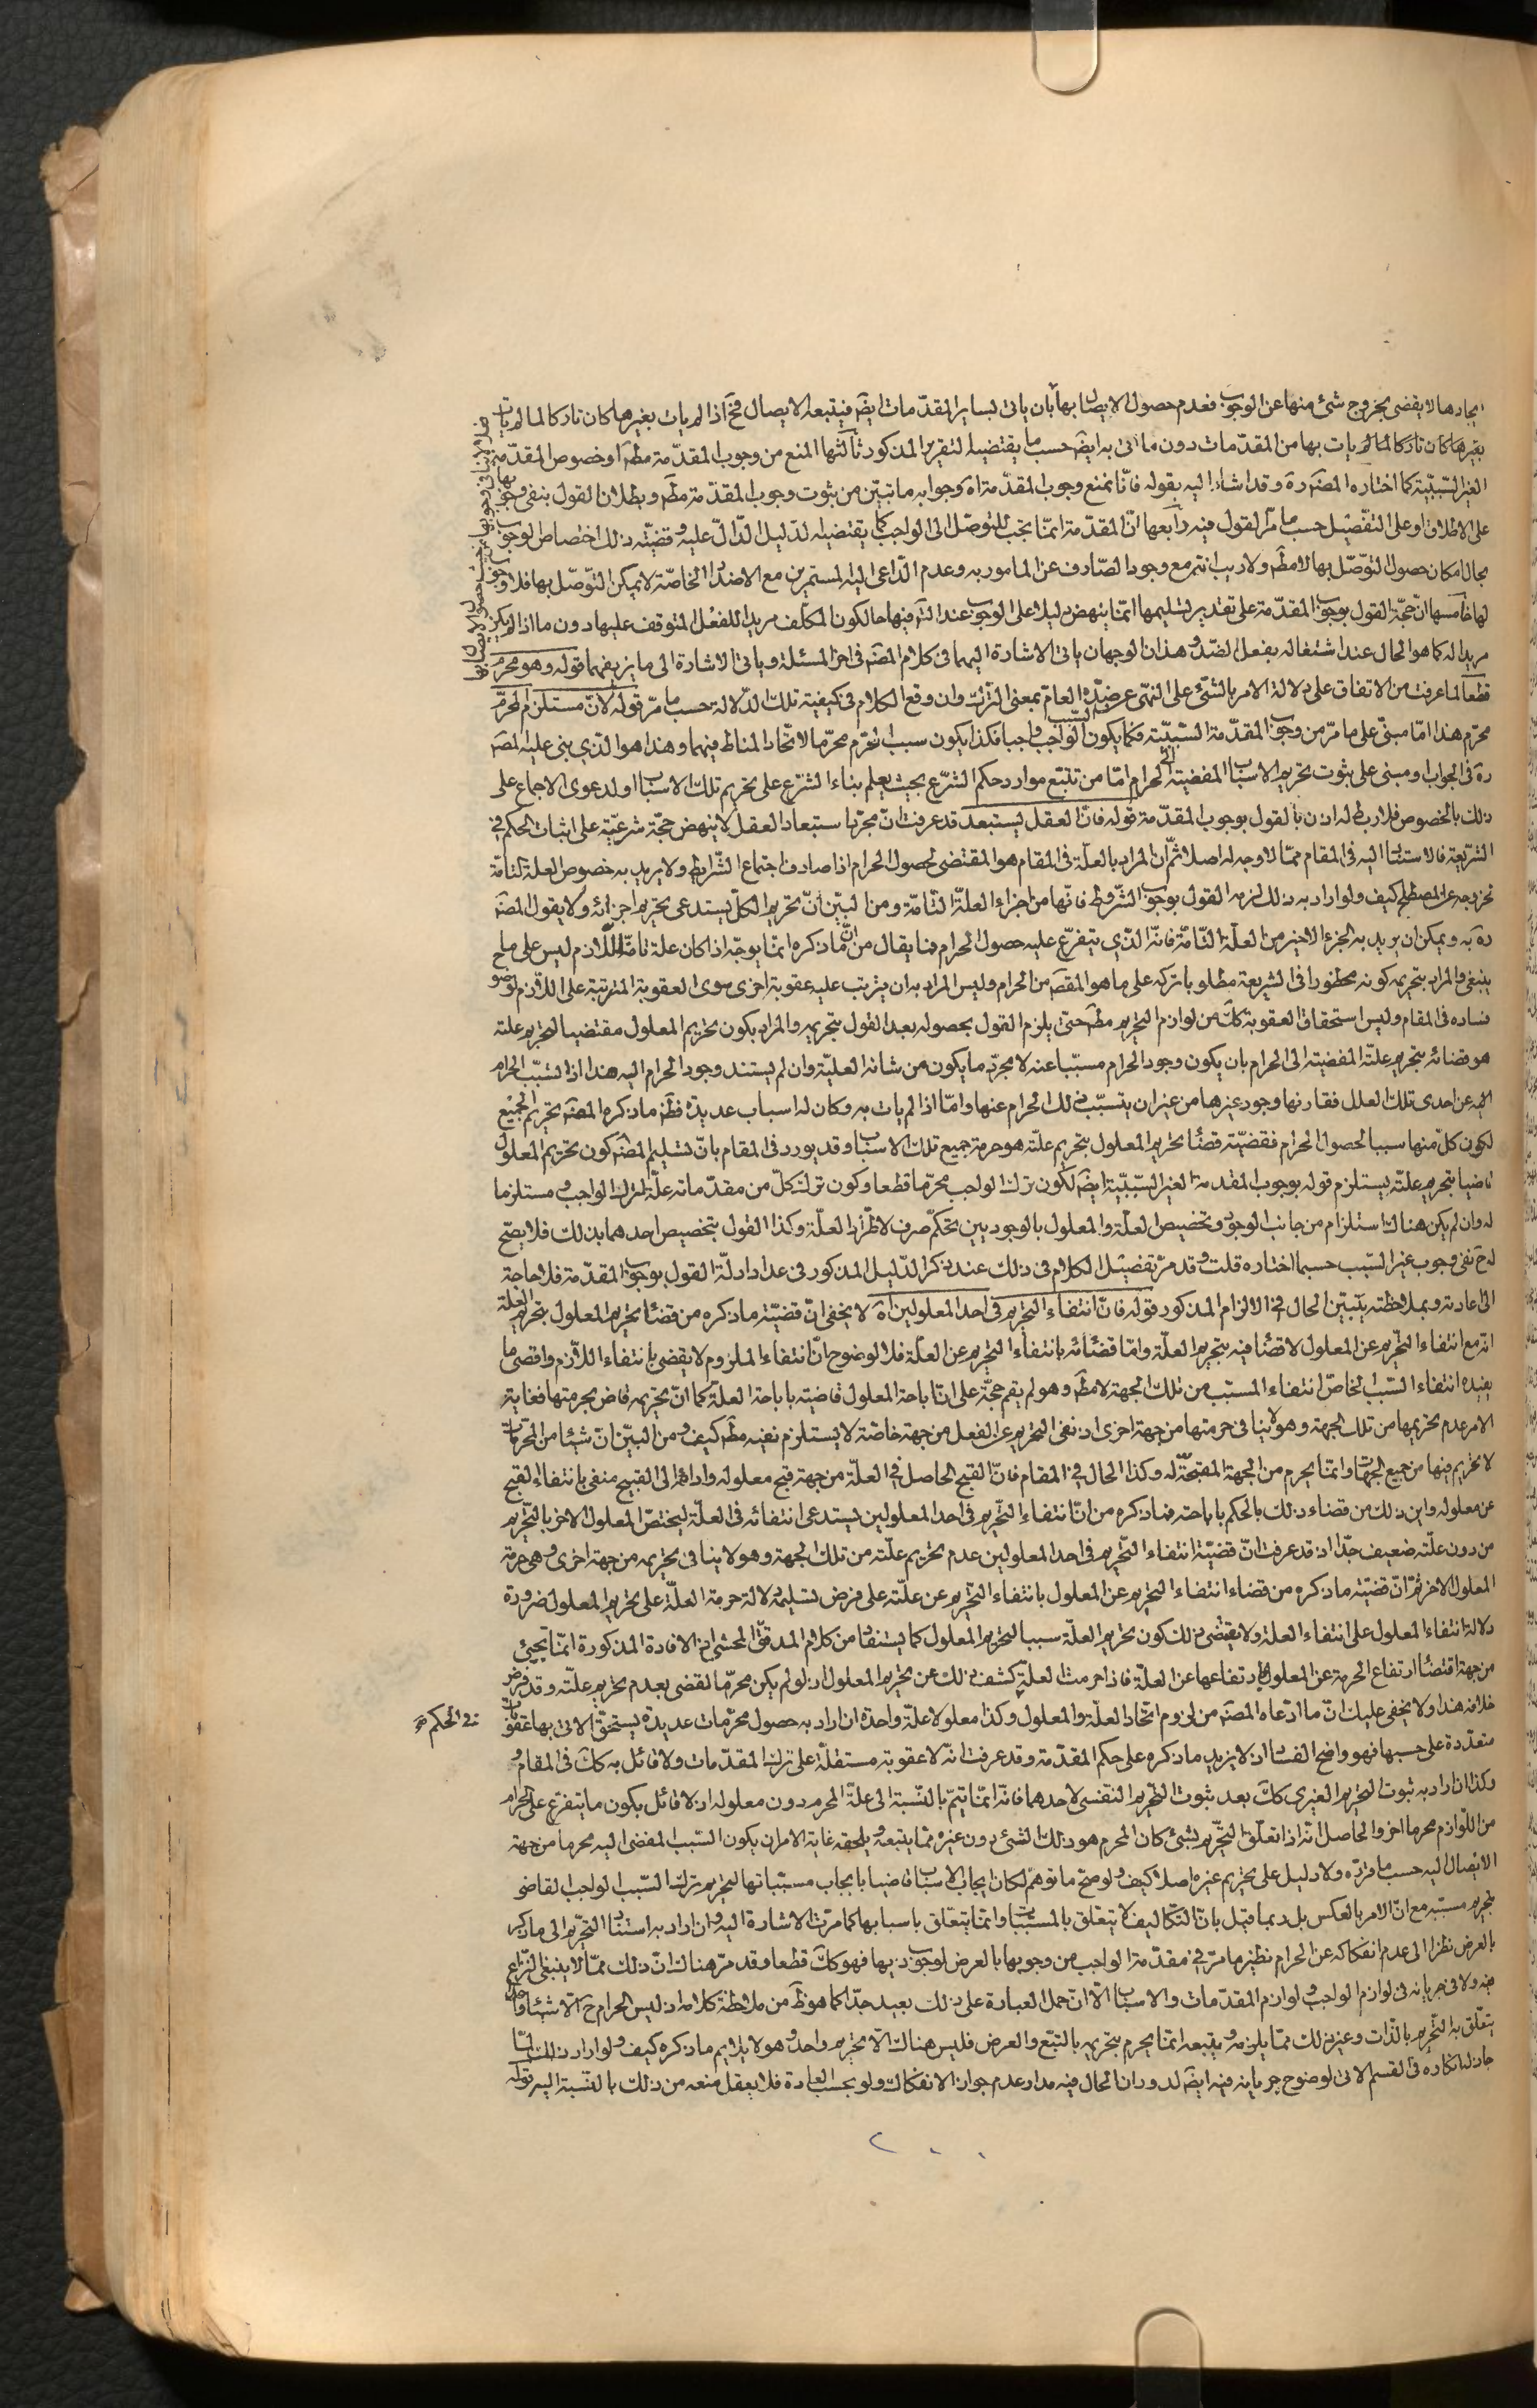 ايجادها لا يقضى بخروج شئ منها عن الوجوب فعدم حصول الايصال بها بان ياتى بساير المقدّمات ايضَ فيتبعه الايصال فحَ اذا لم يات بغيرها كان تاركا لما لم يات
بغيرها كان تاركا لما لم يات بها من المقدّمات دون ما اتى به ايضَ حسب ما يقتضيه التقرير المذكور ثالثها المنع من وجوب المقدّمة مطَ او خصوص المقدّمة
الغير السّببيّة كما اختاره المصَ ره وقد اشار اليه بقوله فانّا نمنع وجوب المقدّمة اه وجوابه ما تبيّن من ثبوت وجوب المقدّمة مطَ وبطلان القول بنفى وجوبها
على الاطلاق او على التفصيل حسب ما مرّ القول فيه رابعها انّ المقدّمة انّما يجب للتوصّل الى الواجب كما يقتضيه الدّليل الدّالّ عليه وقضيّة ذلك اختصاص الوجوب
بحال امكان حصول التوصّل بها لا مطَ ولا ريب انّه مع وجود الصّارف عن المامور به وعدم الدّاعى اليه المستمرين مع الاضداد الخاصّة لا يمكن التوصّل بها فلا وجوب
لها خامسها انّ حجّة القول بوجوب المقدّمة على تقدير تسليمها انّما ينهض دليلا على الوجوب عند التَ فيها حال كون المكلّف مريدا للفعل المتوقف عليها دون ما اذا لم يكن
مريدا له كما هو الحال عند اشتغاله بفعل الضدّ وهذان الوجهان ياتى الاشارة اليهما فى كلام المصَ فى اخر المسئلة وياتى الاشارة الى ما يزيفهما قوله وهو محرّم
قطعا لما عرفت من الاتفاق على دلالة الامر بالشئ على النهى عن ضدّه العام بمعنى الترك وان وقع الكلام فى كيفية تلك الدّلالة حسب ما مرّ قوله لانّ مستلزم المحرّم
محرّم هذا امّا مبنى على ما مرّ من وجوب المقدّمة السّببيّة فكما يكون سبب الواجب واجبا فكذا يكون سبب المحرّم محرّما لاتّحاد المناط فيهما وهذا هو الّذى بنى عليه المصَ
ره فى الجواب او مبنى على ثبوت تحريم الاسباب المفضية الى الحرام امّا من تتبّع موارد حكم الشّرع بحيث يعلم بناء الشّرع على تحريم تلك الاسباب او لدعوى الاجماع على
ذلك بالخصوص فلا ربط له اذن بالقول بوجوب المقدّمة قوله فانّ العقل يستبعد قد عرفت انّ مجرّد استبعاد العقل لا ينهض حجّة شرعيّة على اثبات الحكم فى
الشّريعة فالاستناد اليه فى المقام ممّا لا وجه له اصلا ثمّ انّ المراد بالعلّة فى المقام هو المقتضى لحصول الحرام اذا صادف اجتماع الشّرايط ولا يريد به خصوص العلة التّامّة
لخروجه عن المصطلح كيف ولو اراد به ذلك لزمه القول بوجوب الشّروط فانّها من اجزاء العلّة التّامّة ومن البيّن انّ تحريم الكلّ يستدعى تحريم اجزائه ولا يقول المصَ
ره به ويمكن ان يريد به الجزء الاخير من العلّة التّامّة فانّه الّذى يتفرّع عليه حصول الحرام فما يقال من انّ ما ذكره انّما يوجّه اذا كان علة تامّة للّازم ليس على ما
ينبغى والمراد بتحريمه كونه محظورا فى الشريعة مطلوبا تركه على ما هو المقصَ من الحرام وليس المراد به ان يترتب عليه عقوبة اخرى سوى العقوبة المترتبة على اللّازم لوضوح
فساده فى المقام وليس استحقاق العقوبة كَك من لوازم التحريم مطَ حتى يلزم القول بحصوله بعد القول بتحريمه والمراد بكون تحريم المعلول مقتضيا لتحريم علته
هو قضائه بتحريم علّته المفضية الى الحرام بان يكون وجود الحرام مسبّبا عنه لا مجرّد ما يكون من شانه العليّة وان لم يستند وجود الحرام اليه هذا اذا تسبّب الحرام
اليه عن احدى تلك العلل فقارنها وجود غيرها من غير ان يتسبّب ذلك الحرام عنها وامّا اذا لم يات به وكان له اسباب عديدة فظَ ما ذكره المصَ تحريم الجميع
لكون كلّ منها سببا لحصول الحرام فقضيّة قضاء تحريم المعلول بتحريم علّته هو حرمة جميع تلك الاسباب وقد يورد فى المقام بانّ تسليم المصَ كون تحريم المعلول
قاضيا بتحريم علّته يستلزم قوله بوجوب المقدّمة الغير السّببيّة ايضَ لكون ترك الواجب محرّما قطعا وكون ترك كلّ من مقدّماته علّة لترك الواجب ومستلزما
له وان لم يكن هناك استلزام من جانب الوجود وتخصيص العلّة والمعلول بالوجوديين تحكّم صرف لاطّراد العلّة وكذا القول بتخصيص احدهما بذلك فلا يصحّ
له حَ نفى وجوب غير السّبب حسبما اختاره قلت وقد مرّ تفصيل الكلام فى ذلك عند ذكر الدّليل المذكور فى عداد ادلّة القول بوجوب المقدّمة فلا حاجة
الى اعادته وبملاحظته يتبيّن الحال فى الالزام المذكور قوله فانّ انتفاء التحريم فى احد المعلولين اه لا يخفى انّ قضيّة ما ذكره من قضاء تحريم المعلول بتحريم العلّة
انّه مع انتفاء التّحريم عن المعلول لا قضاء فيه بتحريم العلّة وامّا قضائه بانتفاء التّحريم عن العلّة فلا لوضوح انّ انتفاء الملزوم لا يقضى بانتفاء اللّازم واقصى ما
يفيده انتفاء السّبب الخاصّ انتفاء المسبّب من تلك الجهة لا مطَ وهو لم يقم حجّة على انّ اباحة المعلول قاضية باباحة العلّة كما انّ تحريمه قاض بحرمتها فغاية
الامر عدم تحريمها من تلك الجهة وهو لا ينافى حرمتها من جهة اخرى اذ نفى التحريم عن الفعل من جهة خاصّة لا يستلزم نفيه مطَ كيف ومن البيّن انّ شيئا من المحرمات
لا تحريم فيها من جميع الجهات وانّما يحرم من الجهة المقبّحة له وكذا الحال فى المقام فانّ القبح الحاصل فى العلّة من جهة قبح معلوله وادائها الى القبيح منفى بانتفاء القبح
عن معلوله واين ذلك من قضاء ذلك بالحكم باباحته فما ذكره من انّ انتفاء التّحريم فى احد المعلولين يستدعى انتفائه فى العلّة ليختصّ المعلول الاخر بالتّحريم
من دون علّته ضعيف جدّا اذ قد عرفت انّ قضيّة انتفاء التّحريم فى احد المعلولين عدم تحريم علّته من تلك الجهة وهو لا ينافى تحريمه من جهة اخرى وهى حرمة
المعلول الاخر ثمّ انّ قضيّة ما ذكره من قضاء انتفاء التحريم عن المعلول بانتفاء التّحريم عن علّته على فرض تسليمه دلالة حرمة العلّة على تحريم المعلول ضرورة
دلالة انتفاء المعلول على انتفاء العلة ولا يقضى ذلك كون تحريم العلّة سببا لتحريم المعلول كما يستفاد من كلام المدقّق المحشى اذ الافادة المذكورة انّما تجيئ
من جهة اقتضاء ارتفاع الحرمة عن المعلول ارتفاعها عن العلّة فاذا حرمت العلّة كشف ذلك عن تحريم المعلول اذ لو لم يكن محرّما لقضى بعدم تحريم علّته وقد فرض
خلافه هذا ولا يخفى عليك انّ ما ادّعاه المصَ من لزوم اتّحاد العلّة والمعلول وكذا معلولا علّة واحدة ان اراد به حصول محرّمات عديدة يستحقّ الاتى بها عقوبات
فى الحكم
متعدّدة على حسبها فهو واضح الفساد اذ لا يزيد ما ذكره على حكم المقدّمة وقد عرفت انّه لا عقوبة مستقلّة على ترك المقدّمات ولا قائل به كَك فى المقام و
وكذا ان اراد به ثبوت التحريم الغيرى كَك بعد ثبوت التّحريم النّفسى لاحدهما فانّه انّما يتمّ بالنّسبة الى علّة المحرم دون معلوله اذ لا قائل بكون ما يتفرّع على الحرام
من اللّوازم محرما اخر والحاصل انّه اذا تعلّق التّحريم بشئ كان المحرم هو ذلك الشئ دون غيره ممّا يتبعه ويلحقه غاية الامر ان يكون السّبب المفضى اليه محرما من جهة
الايصال اليه حسب ما قرّره ولا دليل على تحريم غيره اصلا كيف ولو صحّ ما توهّم لكان ايجاب الاسباب قاضيا بايجاب مسبّباتها لتحريم ترك السّبب الواجب القاضى
بتحريم مسبّبه مع انّ الامر بالعكس بل ربما قيل بانّ التّكاليف لا يتعلّق بالمسبّبات وانّما يتعلّق باسبابها كما مرّت الاشارة اليه وان اراد به استناد التّحريم الى ما ذكر
بالعرض نظرا الى عدم انفكاكه عن الحرام نظير ما مرّ فى مقدّمة الواجب من وجوبها بالعرض لوجوب ذيها فهو كَك قطعا وقد مرّ هناك انّ ذلك ممّا لا ينبغى النّزاع
فيه ولا فى جريانه فى لوازم الواجب ولوازم المقدّمات والاسباب الّا انّ حمل العبارة على ذلك بعيد جدّا كما هو ظَ من ملاحظة كلامه اذ ليس الحرام حَ الّا شيئا واحدا
يتعلّق به التّحريم بالذّات وغير ذلك ممّا يلزمه ويتبعه انّما يحرم بتحريمه بالتّبع والعرض فليس هناك الّا تحريم واحد وهو لا يلايم ما ذكره كيف ولو اراد ذلك لما
جاز له انكاره فى القسم الاتى لوضوح جريانه فيه ايضَ لدوران الحال فيه مدار عدم جواز الانفكاك ولو بحسب العادة فلا يعقل منعه من ذلك بالنّسبة اليه قوله